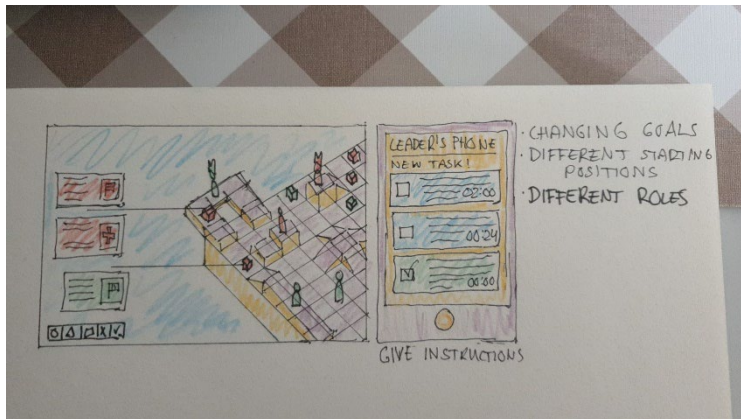 LEADER'S PHONE
NEW TASK!
02:00
00:24
00:00
GIVE INSTRUCTIONS
· CHANGING GOALS
· DIFFERENT STARTING
POSITIONS
· DIFFERENT ROLES